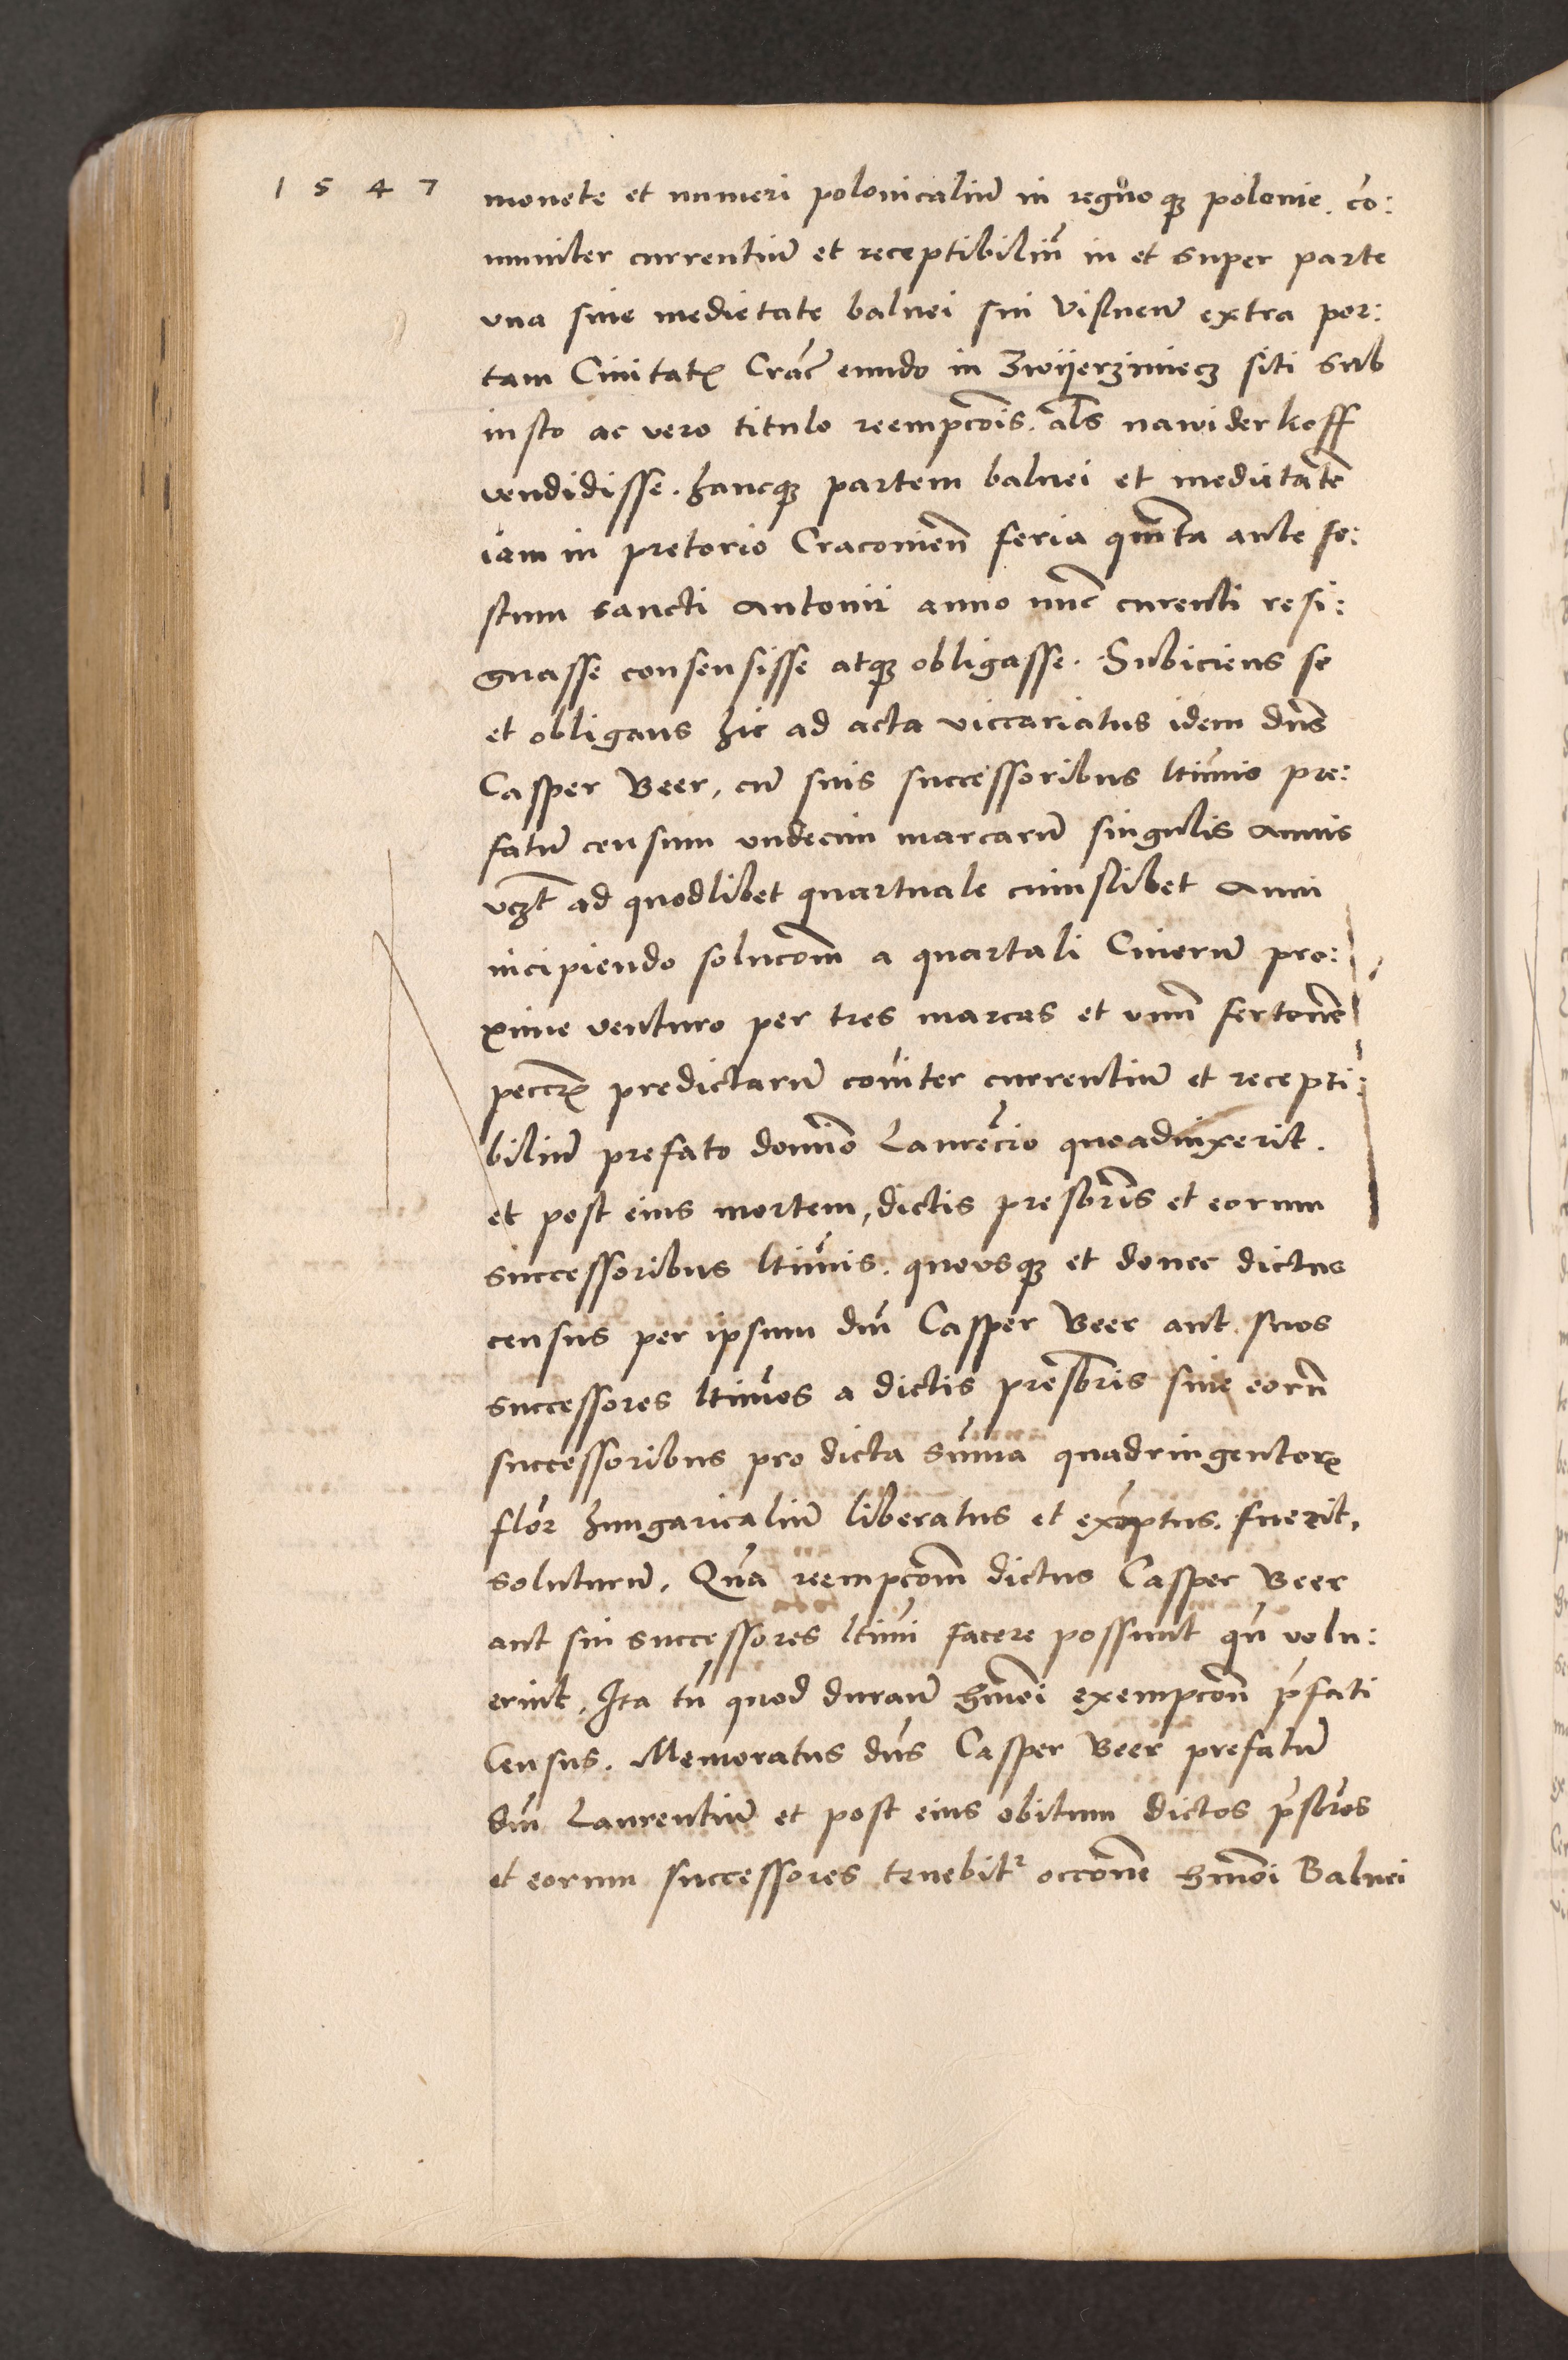 1547
monete et numeri polonicaliũ in regno q̃ polonie. cõ:
muniter currentiũ et receptibiliũ in et super parte
vna siue medietate balnei sui Visnem extra por:
tam Ciuitat̃ Crac̃ eundo in Zwijerziniecz siti sub
iusto ac vero titulo reempc̃ois. al̃s nawiderkoff
vendidisse. hancq̃ partem balnei et medietatẽ
iam in pretorio Cracouieñ feria quinta ante fe:
stum sancti Antonii anno nũc curenti resi:
gnasse consensisse atq̃ obligasse. Subiciens se
et obligans hic ad acta viccariatus idem dñs
Casper Beer, cũ suis successoribus ltimis pre:
fatũ censum vndecim marcarũ singulis Annis
vcz̃t ad quodlibet quartuale cuiuslibet Anni
incipiendo soluc̃om a quartali Cinerũ pro:
xime venturo per tres marcas et vnũ fertonẽ
pecc̃r̃ predictarũ coũiter currentiũ et recepti:
biliũ prefato domĩo Laurẽcio quoaduixerit.
et post eius mortem, dictis presbr̃is et eorum
successoribus ltimis. quousq̃ et donec dictus
census per ipsum dñ Casper Beer aut suos
successores ltimos a dictis presbr̃is siue eorũ
successoribus pro dicta sũma quadringentor̃
flor̃ hungaricaliũ liberatus et exẽptus. fuerit,
soluturũ. Quã reempc̃om dictus Casper Beer
aut sui successores ltimi facere possunt qñ volu:
erint, Ita tñ quod durañ hm̃oi exempc̃oñ p̃fati
Census. Memoratus dñs Casper Beer prefatũ
dñ Laurentiũ et post eius obitum dictos p̃sbr̃os
et eorum successores tenebitr occ̃one hm̃oi Balnei